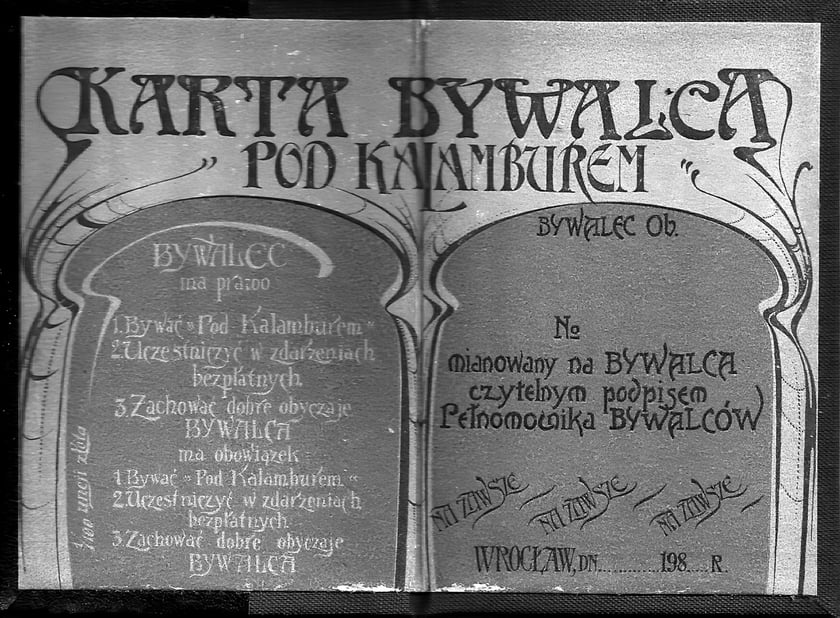 KARTA BYWALCA
„POD KALAMBUREM”
BYWALEC
ma prawo
1. Bywać „Pod Kalamburem”
2. Uczestniczyć w zdarzeniach
bezpłatnych
3. Zachować dobre obyczaje
BYWALCA
ma obowiązek
1. Bywać „Pod Kalamburem”
2. Uczestniczyć w zdarzeniach
bezpłatnych
3. Zachować dobre obyczaje
BYWALCA
uncji złota
BYWALEC Ob.
No
mianowany na BYWALCA
czytelnym podpisem
Pełnomocnika BYWALCÓW
NA ZAWSZE – NA ZAWSZE – NA ZAWSZE –
WROCŁAW, DN............198....R.